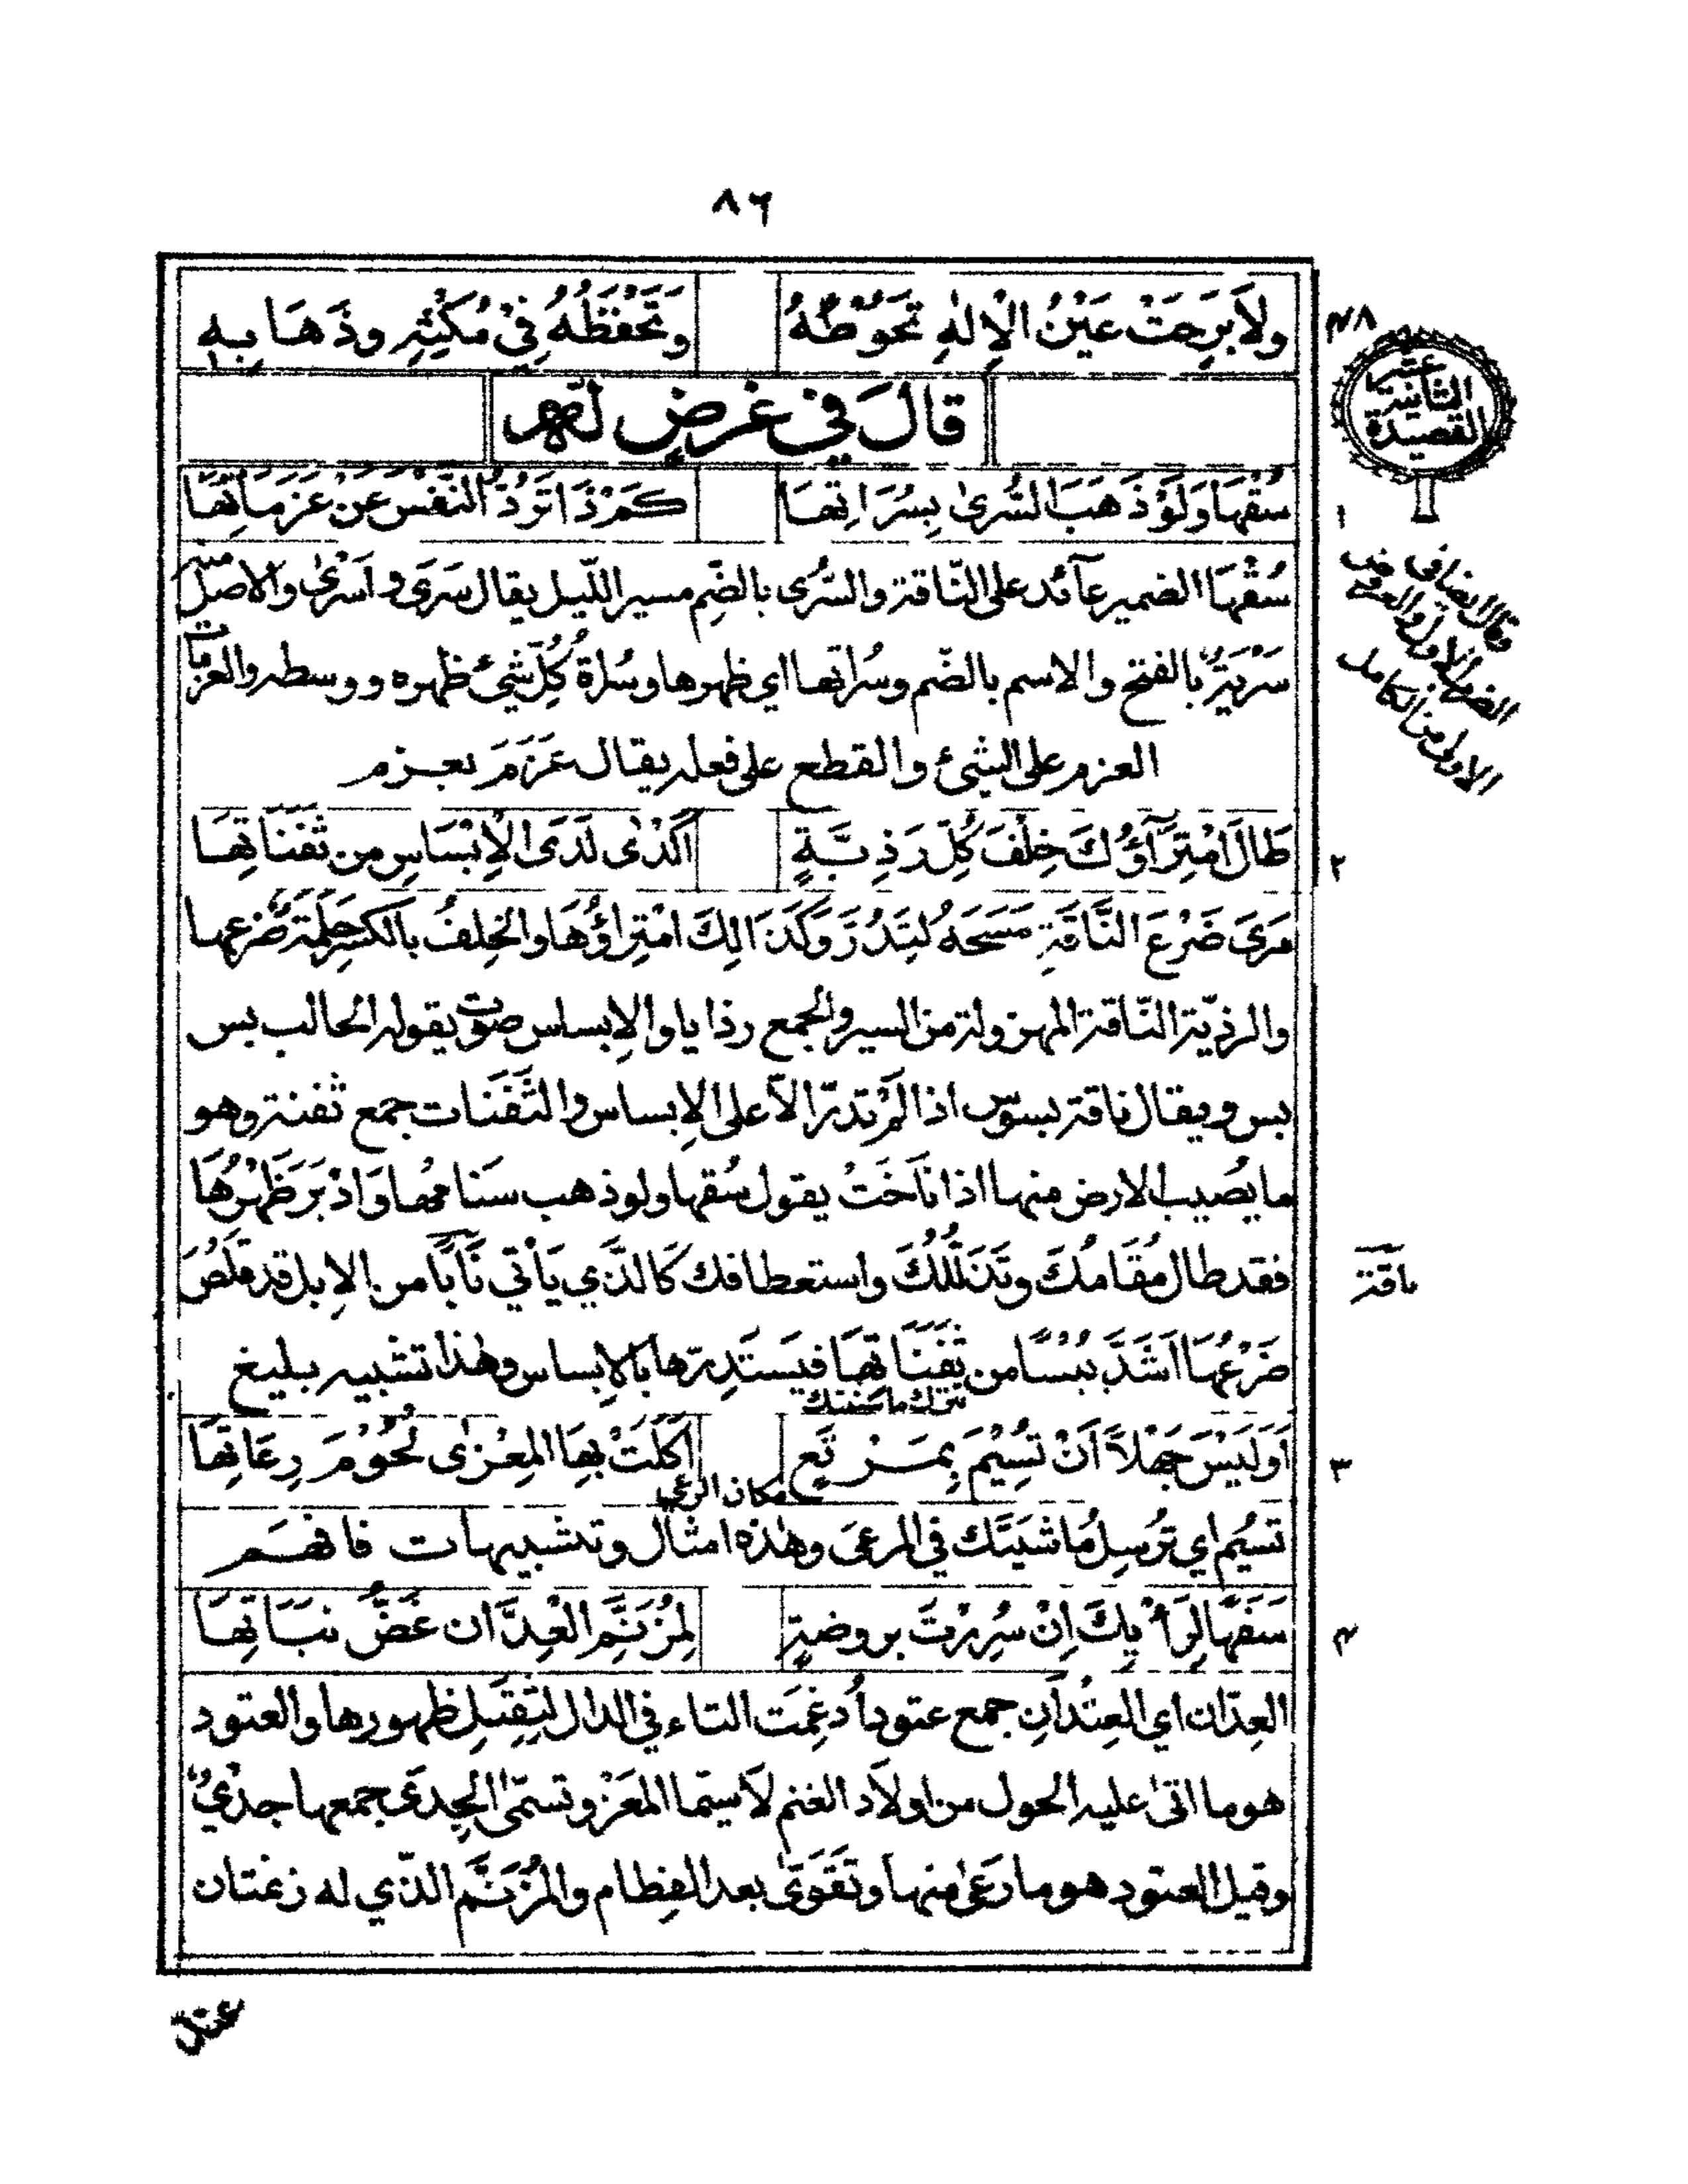 ٨٦
ولَا بَرِحَتْ عَيْنُ الْاِلٰهِ تَحُوْطُهُ وَتَحْفَظُهُ فِيْ مُكْثِهِ وذَهَابِهِ
٤٨
القصيدة الثانية عشر
قالَ في غرضٍ لَهُ
سُقْهَا وَلَوْ ذَهَبَ السُّرىٰ بِسُرَاتِهَا كَمْ ذَا تَرُدُّ النَّفْسَ عَنْ عَزَمَاتِهَا
١
سُقْهَا الضمير عآئد على النّاقة والسُّرى بالضّمِ مسير اللّيل يقال سَرَى و اَسْرىٰ والاصل
سَرْيَةٌ بالفتح والاسم بالضّم وسُراتها اي ظهرها وسُراة كُلِّ شيْئ ظهره ووسطه والعزمات
العزم على الشيئ والقطع على فعله يقال عَزَمَ يعزم
وقال ايضا في
الضرب الاول والعروض
الاولى من الكامل
طَالَ امْتِرَآؤُكَ خِلْفَ كُلِّ رَذِيَّةٍ اَكْدٰى لَدَى الْاِبْسَاسِ من ثَفَنَاتِهَا
٢
مَرَىَ ضَرْعَ النَّاقَةِ مَسَحَهُ لِتَدُرَّ وَكَذَالِكَ امْتِراؤُهَا والخِلفُ بالكسر حَلَمَة ضرعها
والرذيّة النّاقة المهزولة من السير والجمع رذايا والاِبساس صوت يقوله الحالب بس
بس ويقال ناقة بسوس اذا لَمْ تدرّ الاّ على الاِبساس والثَّفَنَات جمع ثفنة وهو
ما يُصيب الارض منها اذا نَاخَتْ يقول سُقها ولو ذهب سَنامُها وَاَدْبَرَ ظَهْرُهَا
فقد طال مُقَامُكَ وتَذَلُّلُكَ واستعطافك كَالَّذي يَأتي نَابًا من الاِبل قد قَلَصَ
ناقة
ضَرْعُهَا اَشَدَّ يُبْسًا من ثَفَنَاتِهَا فيَستَدِرّها بالاِبساس وهٰذا تشبيه بليغ
تترك ماشيتك
اَوَلَيْسَ جَهْلاً اَنْ تُسِيْمَ بِمَرْتَعٍ اَكَلَتْ بِهَا المِعْزىٰ لُحُوْمَ رِعَاتِهَا
٣
مكان الرعي
تُسيْم اي تُرْسِلُ مَاشيَتَك في المرعىَ وهٰذه امثال وتشبيهات فافهم
سَفَهًا لِرَأْيِكَ اِنْ سُرِرْتَ بروضةٍ لِمُزَنَّمِ الْعِدَّان غَضُّ نبَاتِهَا
٤
العِدّان اي العِتْدانِ جمع عتود اُدغِمَت التاء في الدال لثِقَلِ ظهورها والعتود
هو ما اتىٰ عليه الحول من اولَاد الغنم لَا سيّما المَعْز وتسمّىٰ الجِدى جمعها جدْيٌ
وقيل العتود هو ما رَعىٰ منها وتَقَوىّٰ بعد الفِطام والمُزَنَّم الذّي له زنمتان